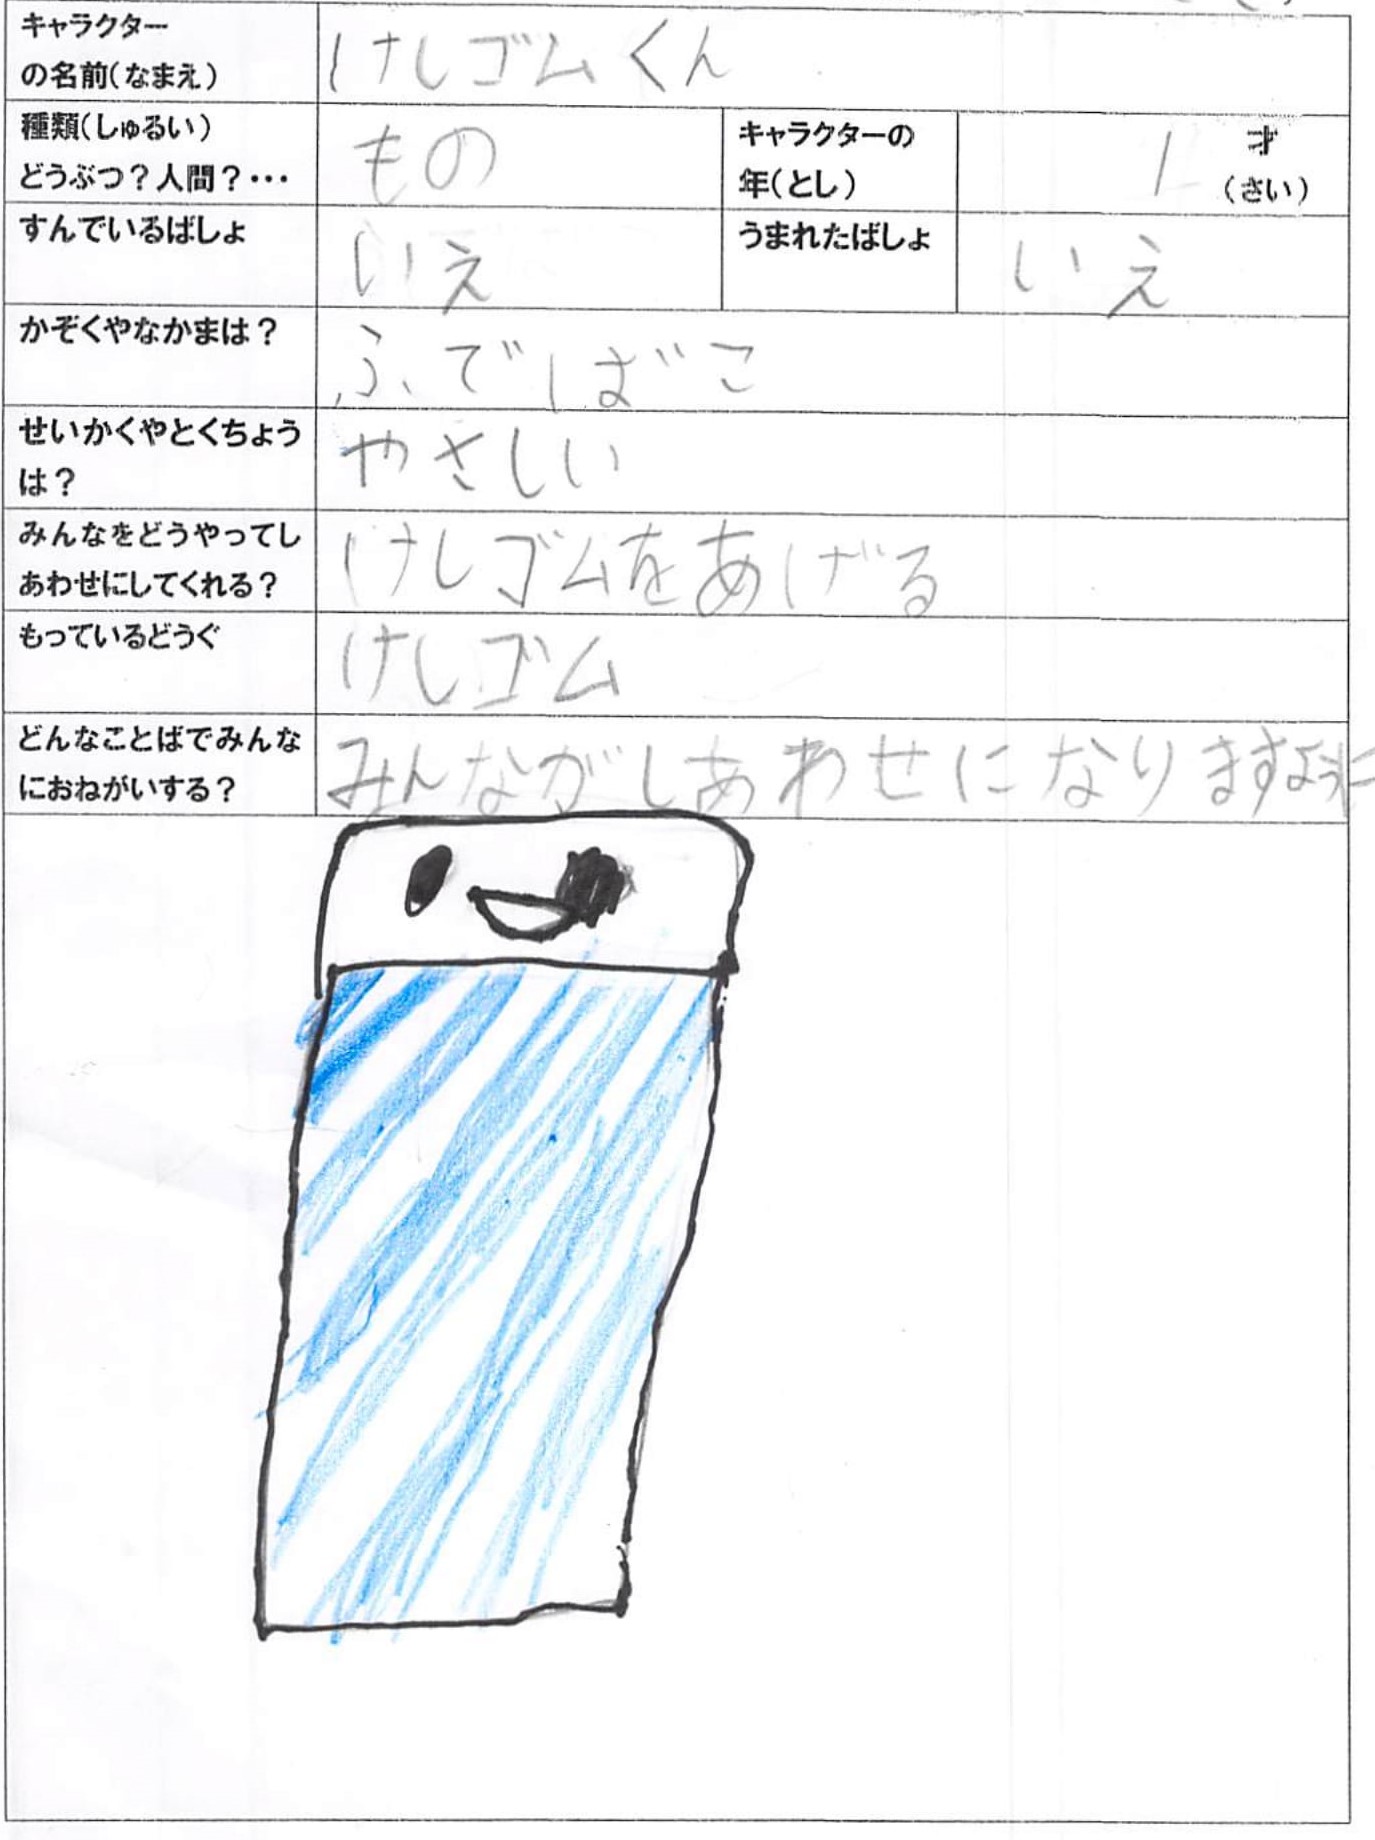 キャラクター
の名前(なまえ)
けしゴムくん
種類(しゅるい)
どうぶつ?人間?・・・
もの
キャラクターの
年(とし)
1 才
(さい)
すんでいるばしょ
いえ
うまれたばしょ
いえ
かぞくやなかまは?
ふでばこ
せいかくやとくちょう
は?
やさしい
みんなをどうやってし
あわせにしてくれる?
けしゴムをあげる
もっているどうぐ
けしゴム
どんなことばでみんな
におねがいする?
みんながしあわせになりますように